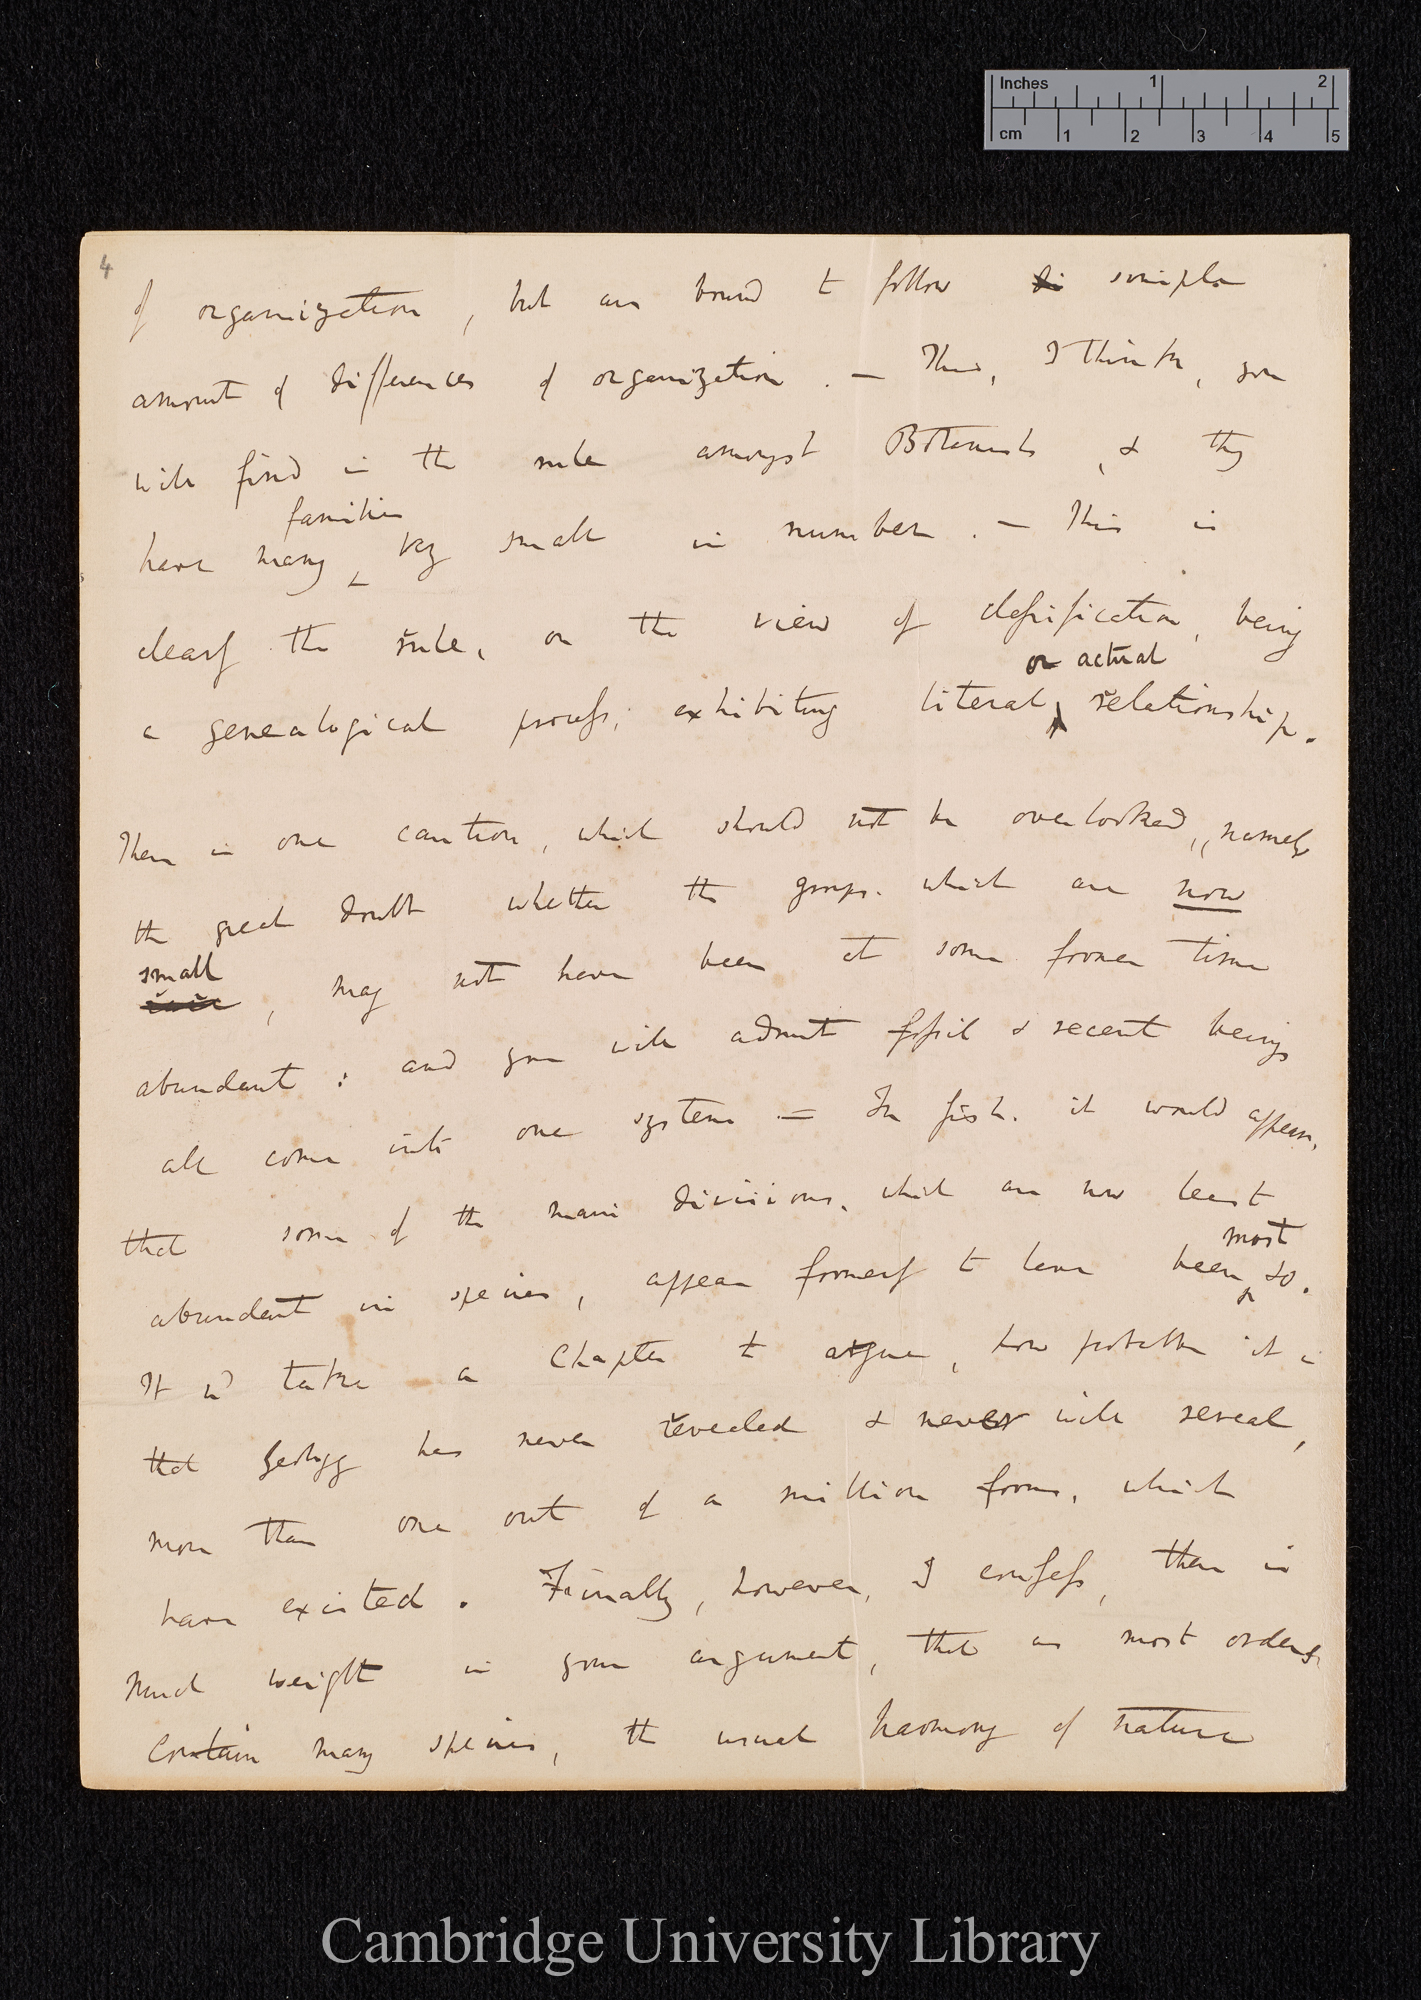 Inches 1 2
cm 1 2 3 4 5
4
of organization, but are bound to follow di simple
amount of differences of organization. — This, I think, you
will find is the rule amongst Botanists, & they
families
have many ‸ very small in number. — This is
clearly the rule, on the view of classification, being
or actual
a genealogical process, exhibiting literal ‸ relationship.
There is one caution, which should not be overlooked, namely
the great doubt whether the groups, which are now
small
, may not have been at some former time
abundant: and you will admit fossil & recent beings
all come into one system — In fish. it would appear,
that some of the main divisions, which are now least
most
abundant in species, appear formerly to have been ‸ so.
It wd take a Chapter to argue, how probable it is
that Geology has never revealed & never will reveal,
more than one out of a million forms, which
have existed. Finally, however, I confess, there is
much weight in your argument, that as most orders
contain many species, the usual harmony of nature
Cambridge University Library